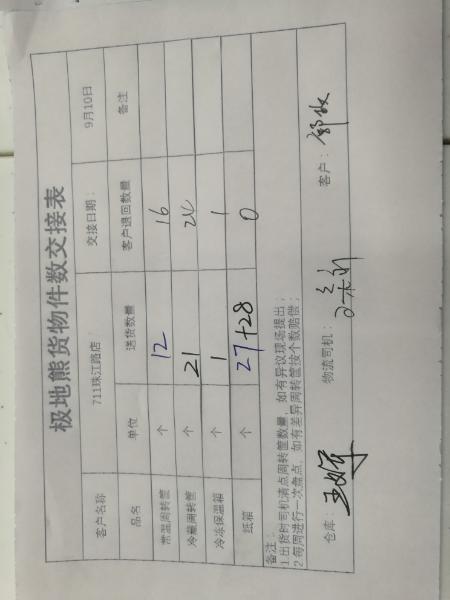 极地熊货物件数交接表
客户名称 711珠江路店 交接日期： 9月10日
品名 单位 送货数量 客户退回数量 备注
常温周转筐 个 12 16
冷藏周转筐 个 21
冷冻保温箱 个 1 1
纸箱 个 27+28 0
备注：
1.出货时司机清点周转筐数量，如有异议现场提出；
2.每周进行一次盘点，如有差异周转筐按个数赔偿；
仓库： 物流司机： 客户：